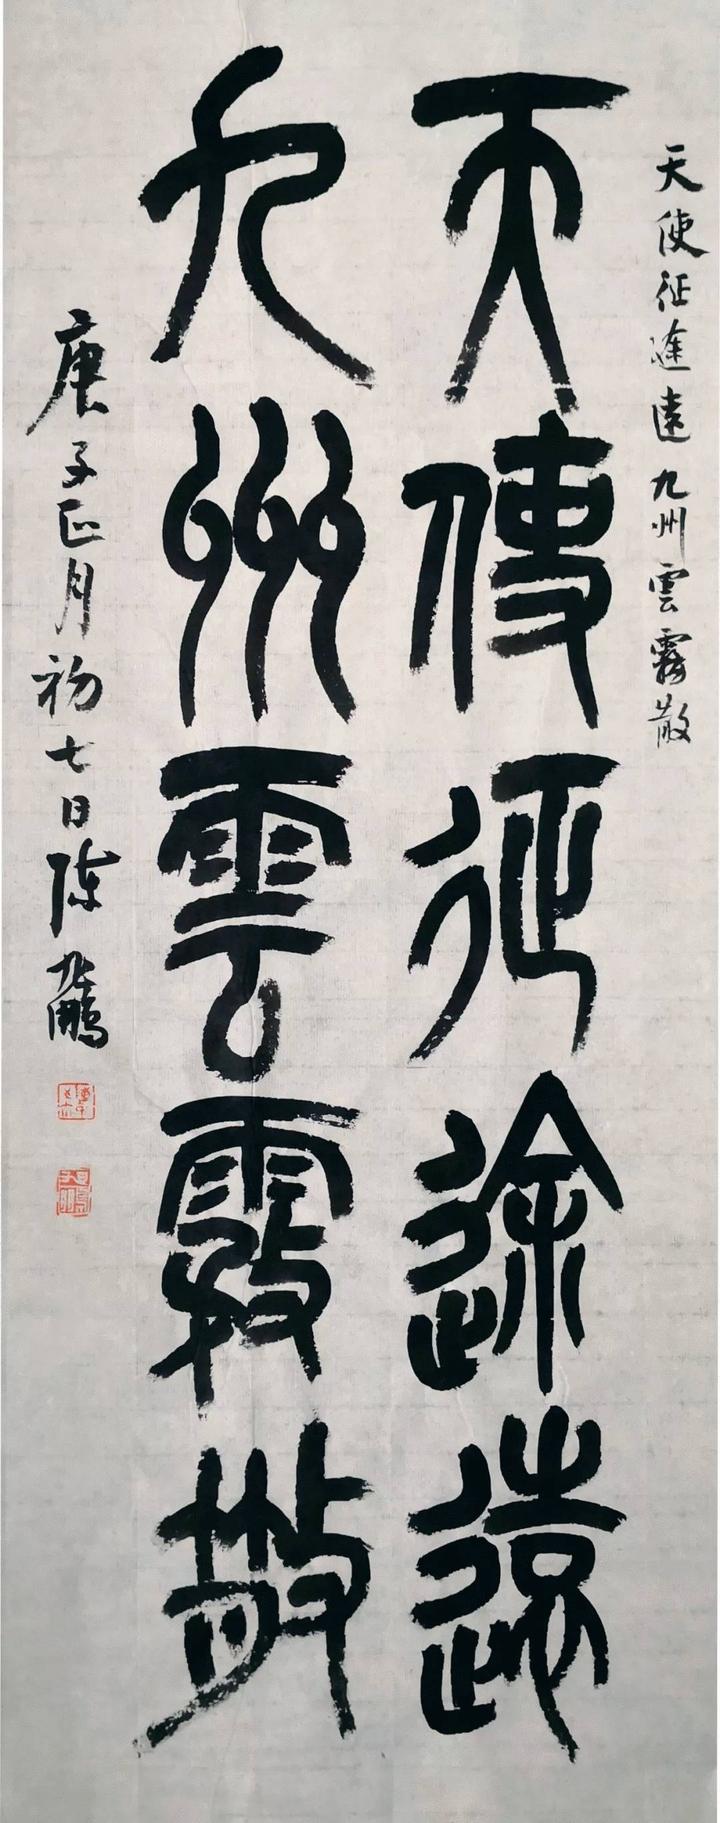 天使征途遠九州雲霧散
天使征途遠
九州雲霧散
庚子正月初七日陳九鵬